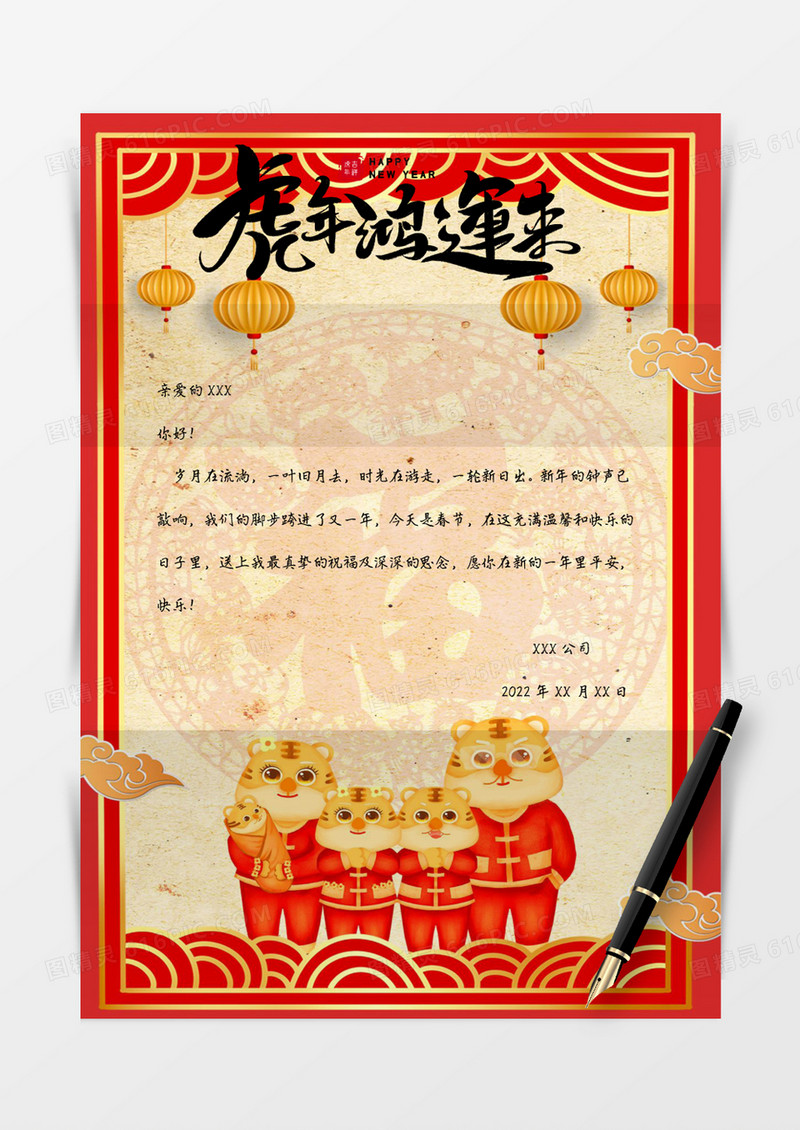 吉祥
虎年
HAPPY
NEW YEAR
虎年鸿運来
亲爱的 XXX
你好！
岁月在流淌，一叶旧月去，时光在游走，一轮新日出。新年的钟声已
敲响，我们的脚步跨进了又一年，今天是春节，在这充满温馨和快乐的
日子里，送上我最真挚的祝福及深深的思念，愿你在新的一年里平安，
快乐！
福
XXX 公司
2022 年 XX 月 XX 日
图精灵 616PIC.COM